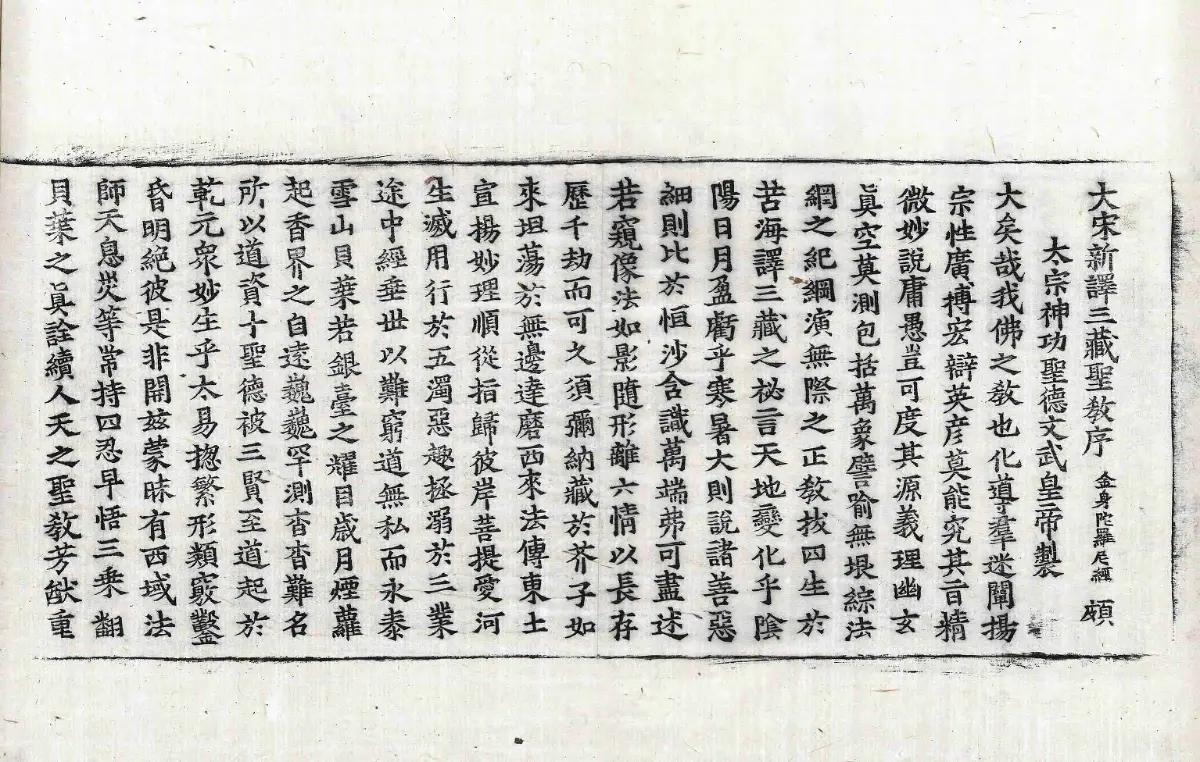 大宋新譯三藏聖敎序 金身陀羅尼經 頗
太宗神功聖德文武皇帝製
大矣哉我佛之敎也化導羣迷闡揚
宗性廣搏宏辯英彦莫能究其旨精
微妙說庸愚豈可度其源義理幽玄
眞空莫測包括萬象譬喻無垠綜法
網之紀綱演無際之正敎拔四生於
苦海譯三藏之祕言天地變化乎陰
陽日月盈虧乎寒暑大則說諸善惡
細則比於恒沙含識萬端弗可盡述
若窺像法如影隨形離六情以長存
歷千劫而可久須彌納藏於芥子如
來坦蕩於無邊達磨西來法傳東土
宣揚妙理順從指歸彼岸菩提愛河
生滅用行於五濁惡趣拯溺於三業
途中經垂世以難窮道無私而永泰
雪山貝葉若銀臺之耀目歲月煙蘿
起香界之自遠巍巍罕測杳杳難名
所以道資十聖德被三賢至道起於
乾元衆妙生乎太易揔繁形類竅鑿
昏明絕彼是非開玆蒙昧有西域法
師天息灾等常持四忍早悟三乘翻
貝葉之眞詮續人天之聖敎芳猷重